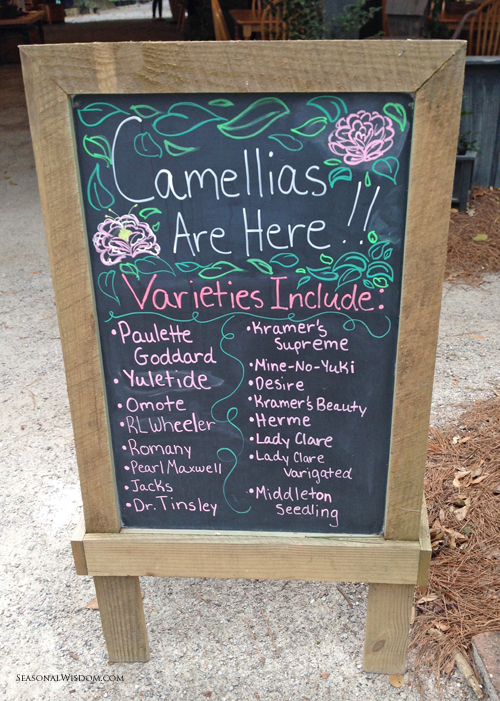 Camellias
Are Here!!
Varieties Include:
•Paulette
Goddard
•Yuletide
•Omote
•RL Wheeler
•Romany
•Pearl Maxwell
•Jacks
•Dr. Tinsley
•Kramer's
Supreme
•Mine-No-Yuki
•Desire
•Kramer's Beauty
•Herme
•Lady Clare
•Lady Clare
Varigated
•Middleton
Seedling
SeasonalWisdom.com